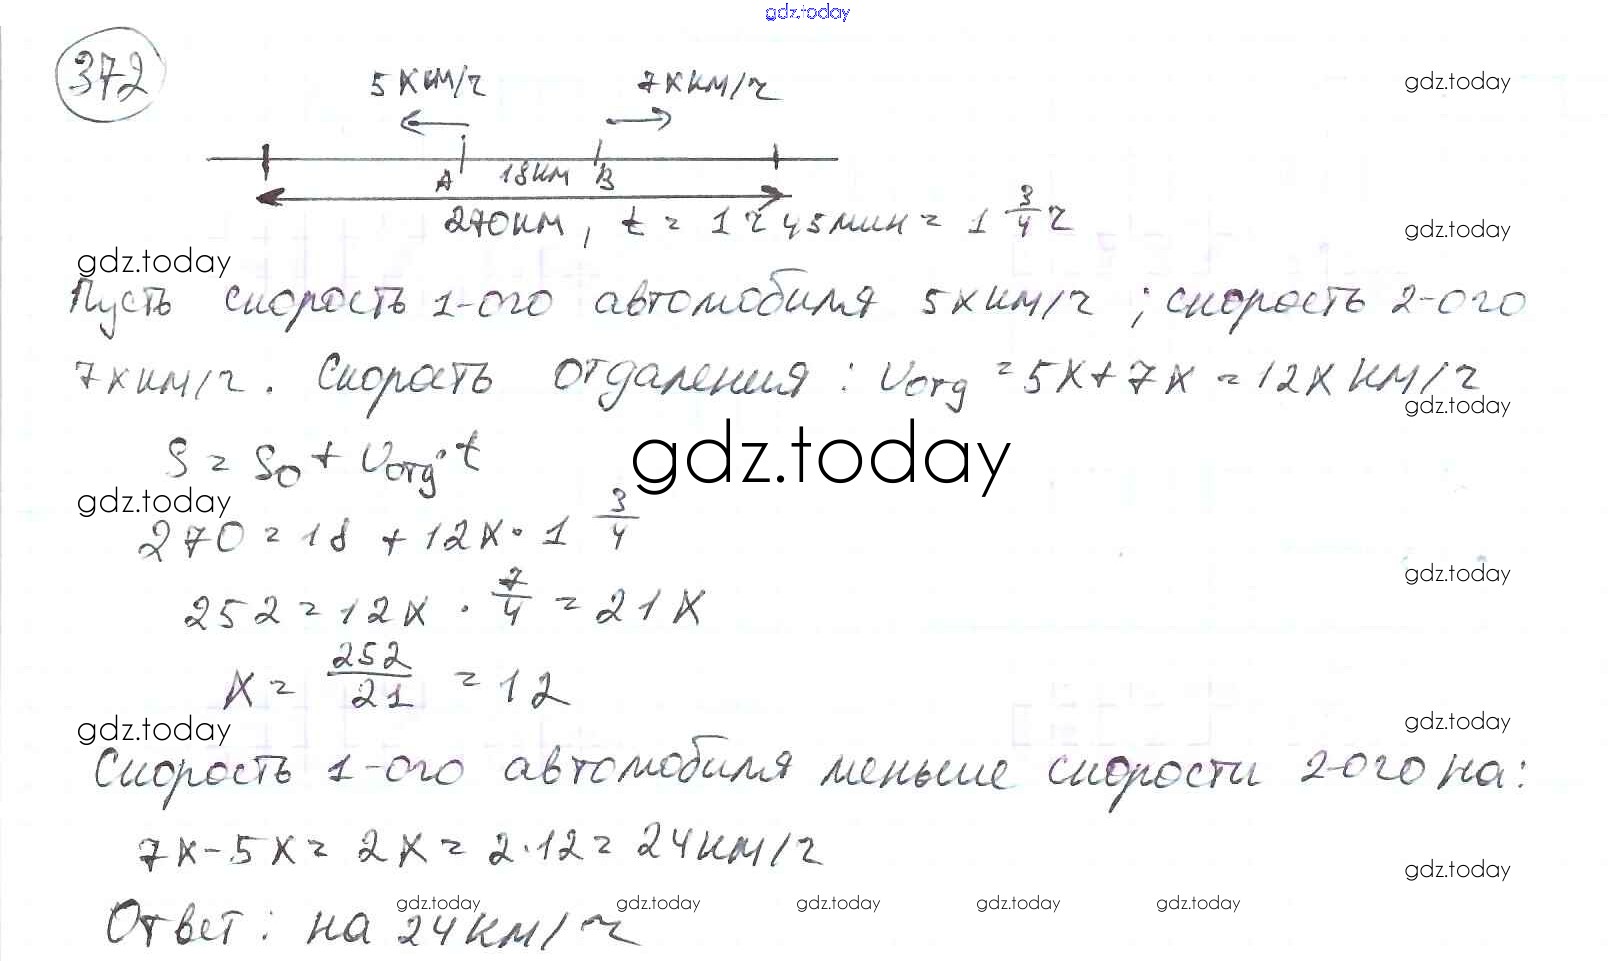 gdz.today
372
5x км/ч 7x км/ч
gdz.today
A 18км B
270км, t = 1ч 45мин = 1 3/4 ч
gdz.today
gdz.today
Пусть скорость 1-ого автомобиля 5x км/ч ; скорость 2-ого
7x км/ч. Скорость отдаления : Vотд = 5x + 7x = 12x км/ч
gdz.today
S = S0 + Vотд · t
gdz.today
gdz.today
270 = 18 + 12x · 1 3/4
gdz.today
252 = 12x · 7/4 = 21x
x = 252/21 = 12
gdz.today
gdz.today
Скорость 1-ого автомобиля меньше скорости 2-ого на:
7x - 5x = 2x = 2·12 = 24км/ч
gdz.today
gdz.today gdz.today gdz.today gdz.today gdz.today
Ответ : на 24км/ч